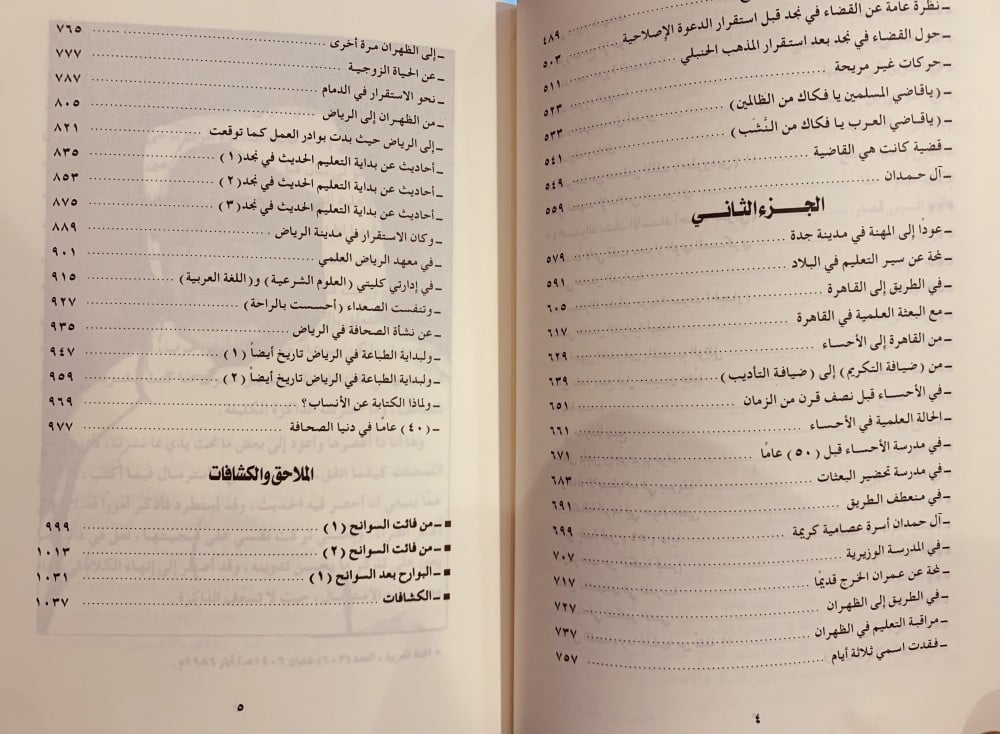 ـ نظرة عامة عن القضاء في نجد قبل استقرار الدعوة الإصلاحية ٤٨٩
ـ حول القضاء في نجد بعد استقرار المذهب الحنبلي ٥٠٣
ـ حركات غير مريحة ٥١١
ـ (ياقاضي المسلمين يا فكاك من الظالمين) ٥٢٣
ـ (ياقاضي العرب يا فكاك من النَّشَب) ٥٣٣
ـ قضية كانت هي القاضية ٥٤١
ـ آل حمدان ٥٤٩
الجزء الثاني ٥٥٩
ـ عودًا إلى المهنة في مدينة جدة ٥٧٩
ـ لمحة عن سير التعليم في البلاد ٥٩١
ـ في الطريق إلى القاهرة ٦٠٥
ـ مع البعثة العلمية في القاهرة ٦١٧
ـ من القاهرة إلى الأحساء ٦٢٩
ـ من (ضيافة التكريم) إلى (ضيافة التأديب) ٦٣٩
ـ في الأحساء قبل نصف قرن من الزمان ٦٥١
ـ الحالة العلمية في الأحساء ٦٦١
ـ في مدرسة الأحساء قبل (٥٠) عامًا ٦٧١
ـ في مدرسة تحضير البعثات ٦٨٣
ـ في منعطف الطريق ٦٩١
ـ آل حمدان أسرة عصامية كريمة ٦٩٩
ـ في المدرسة الوزيرية ٧٠٧
ـ لمحة عن عمران الخرج قديمًا ٧١٧
ـ في الطريق إلى الظهران ٧٢٧
ـ مراقبة التعليم في الظهران ٧٣٧
ـ فقدت اسمي ثلاثة أيام ٧٥٧
٤
ـ إلى الظهران مرة أخرى ٧٦٥
ـ عن الحياة الزوجية ٧٧٧
ـ نحو الاستقرار في الدمام ٧٨٧
ـ من الظهران إلى الرياض ٨٠٥
ـ إلى الرياض حيث بدت بوادر العمل كما توقعت ٨٢١
ـ أحاديث عن بداية التعليم الحديث في نجد (١) ٨٣٥
ـ أحاديث عن بداية التعليم الحديث في نجد (٢) ٨٥٣
ـ أحاديث عن بداية التعليم الحديث في نجد (٣) ٨٧٥
ـ وكان الاستقرار في مدينة الرياض ٨٨٩
ـ في معهد الرياض العلمي ٩٠١
ـ في إدارتي كليتي (العلوم الشرعية) و(اللغة العربية) ٩١٥
ـ وتنفست الصعداء (أحسست بالراحة) ٩٢٧
ـ عن نشأة الصحافة في الرياض ٩٣٥
ـ ولبداية الطباعة في الرياض تاريخ أيضاً (١) ٩٤٧
ـ ولبداية الطباعة في الرياض تاريخ أيضاً (٢) ٩٥٩
ـ ولماذا الكتابة عن الأنساب؟ ٩٦٩
ـ (٤٠) عامًا في دنيا الصحافة ٩٧٧
الملاحق والكشافات
■ ـ من فائت السوانح (١) ٩٩٩
■ ـ من فائت السوانح (٢) ١٠١٣
■ ـ البوارح بعد السوانح (١) ١٠٣١
■ ـ الكشافات ١٠٣٧
٥